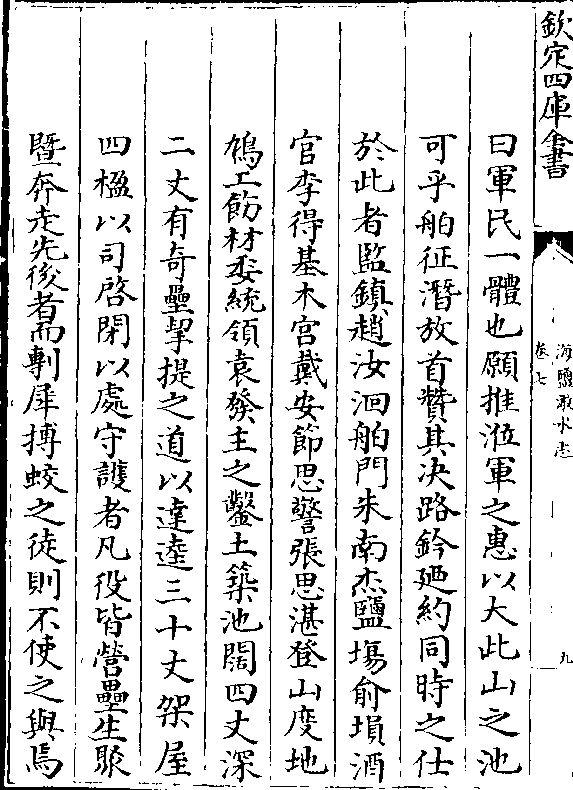 欽定四庫全書
海鹽澉水志
卷七
九
曰軍民一體也願推涖軍之惠以大此山之池
可乎舶征潛放首贊其決路鈐廼約同時之仕
於此者監鎮趙汝洄舶門朱南杰鹽場俞塤酒
官李得基木宮戴安節思警張思湛登山度地
鳩工飭材委統領袁發主之鑿土築池闊四丈深
二丈有奇壘挈提之道以達逵三十丈架屋
四楹以司啓閉以處守護者凡役皆營壘生聚
暨奔走先後者而剸犀搏蛟之徒則不使之與焉